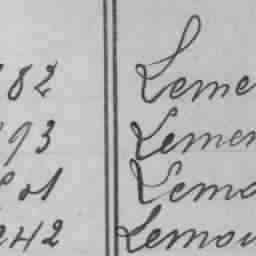 82 Leme
93 Lemen
Lema
242 Lemou